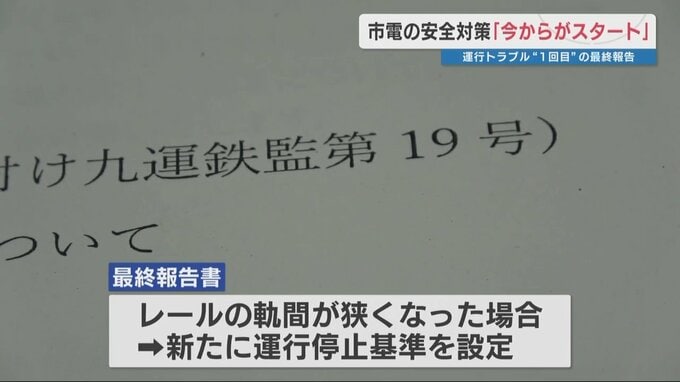 市電の安全対策「今からがスタート」
運行トラブル“1回目”の最終報告
付け九運鉄監第 19 号）
ついて
最終報告書
レールの軌間が狭くなった場合
➡新たに運行停止基準を設定